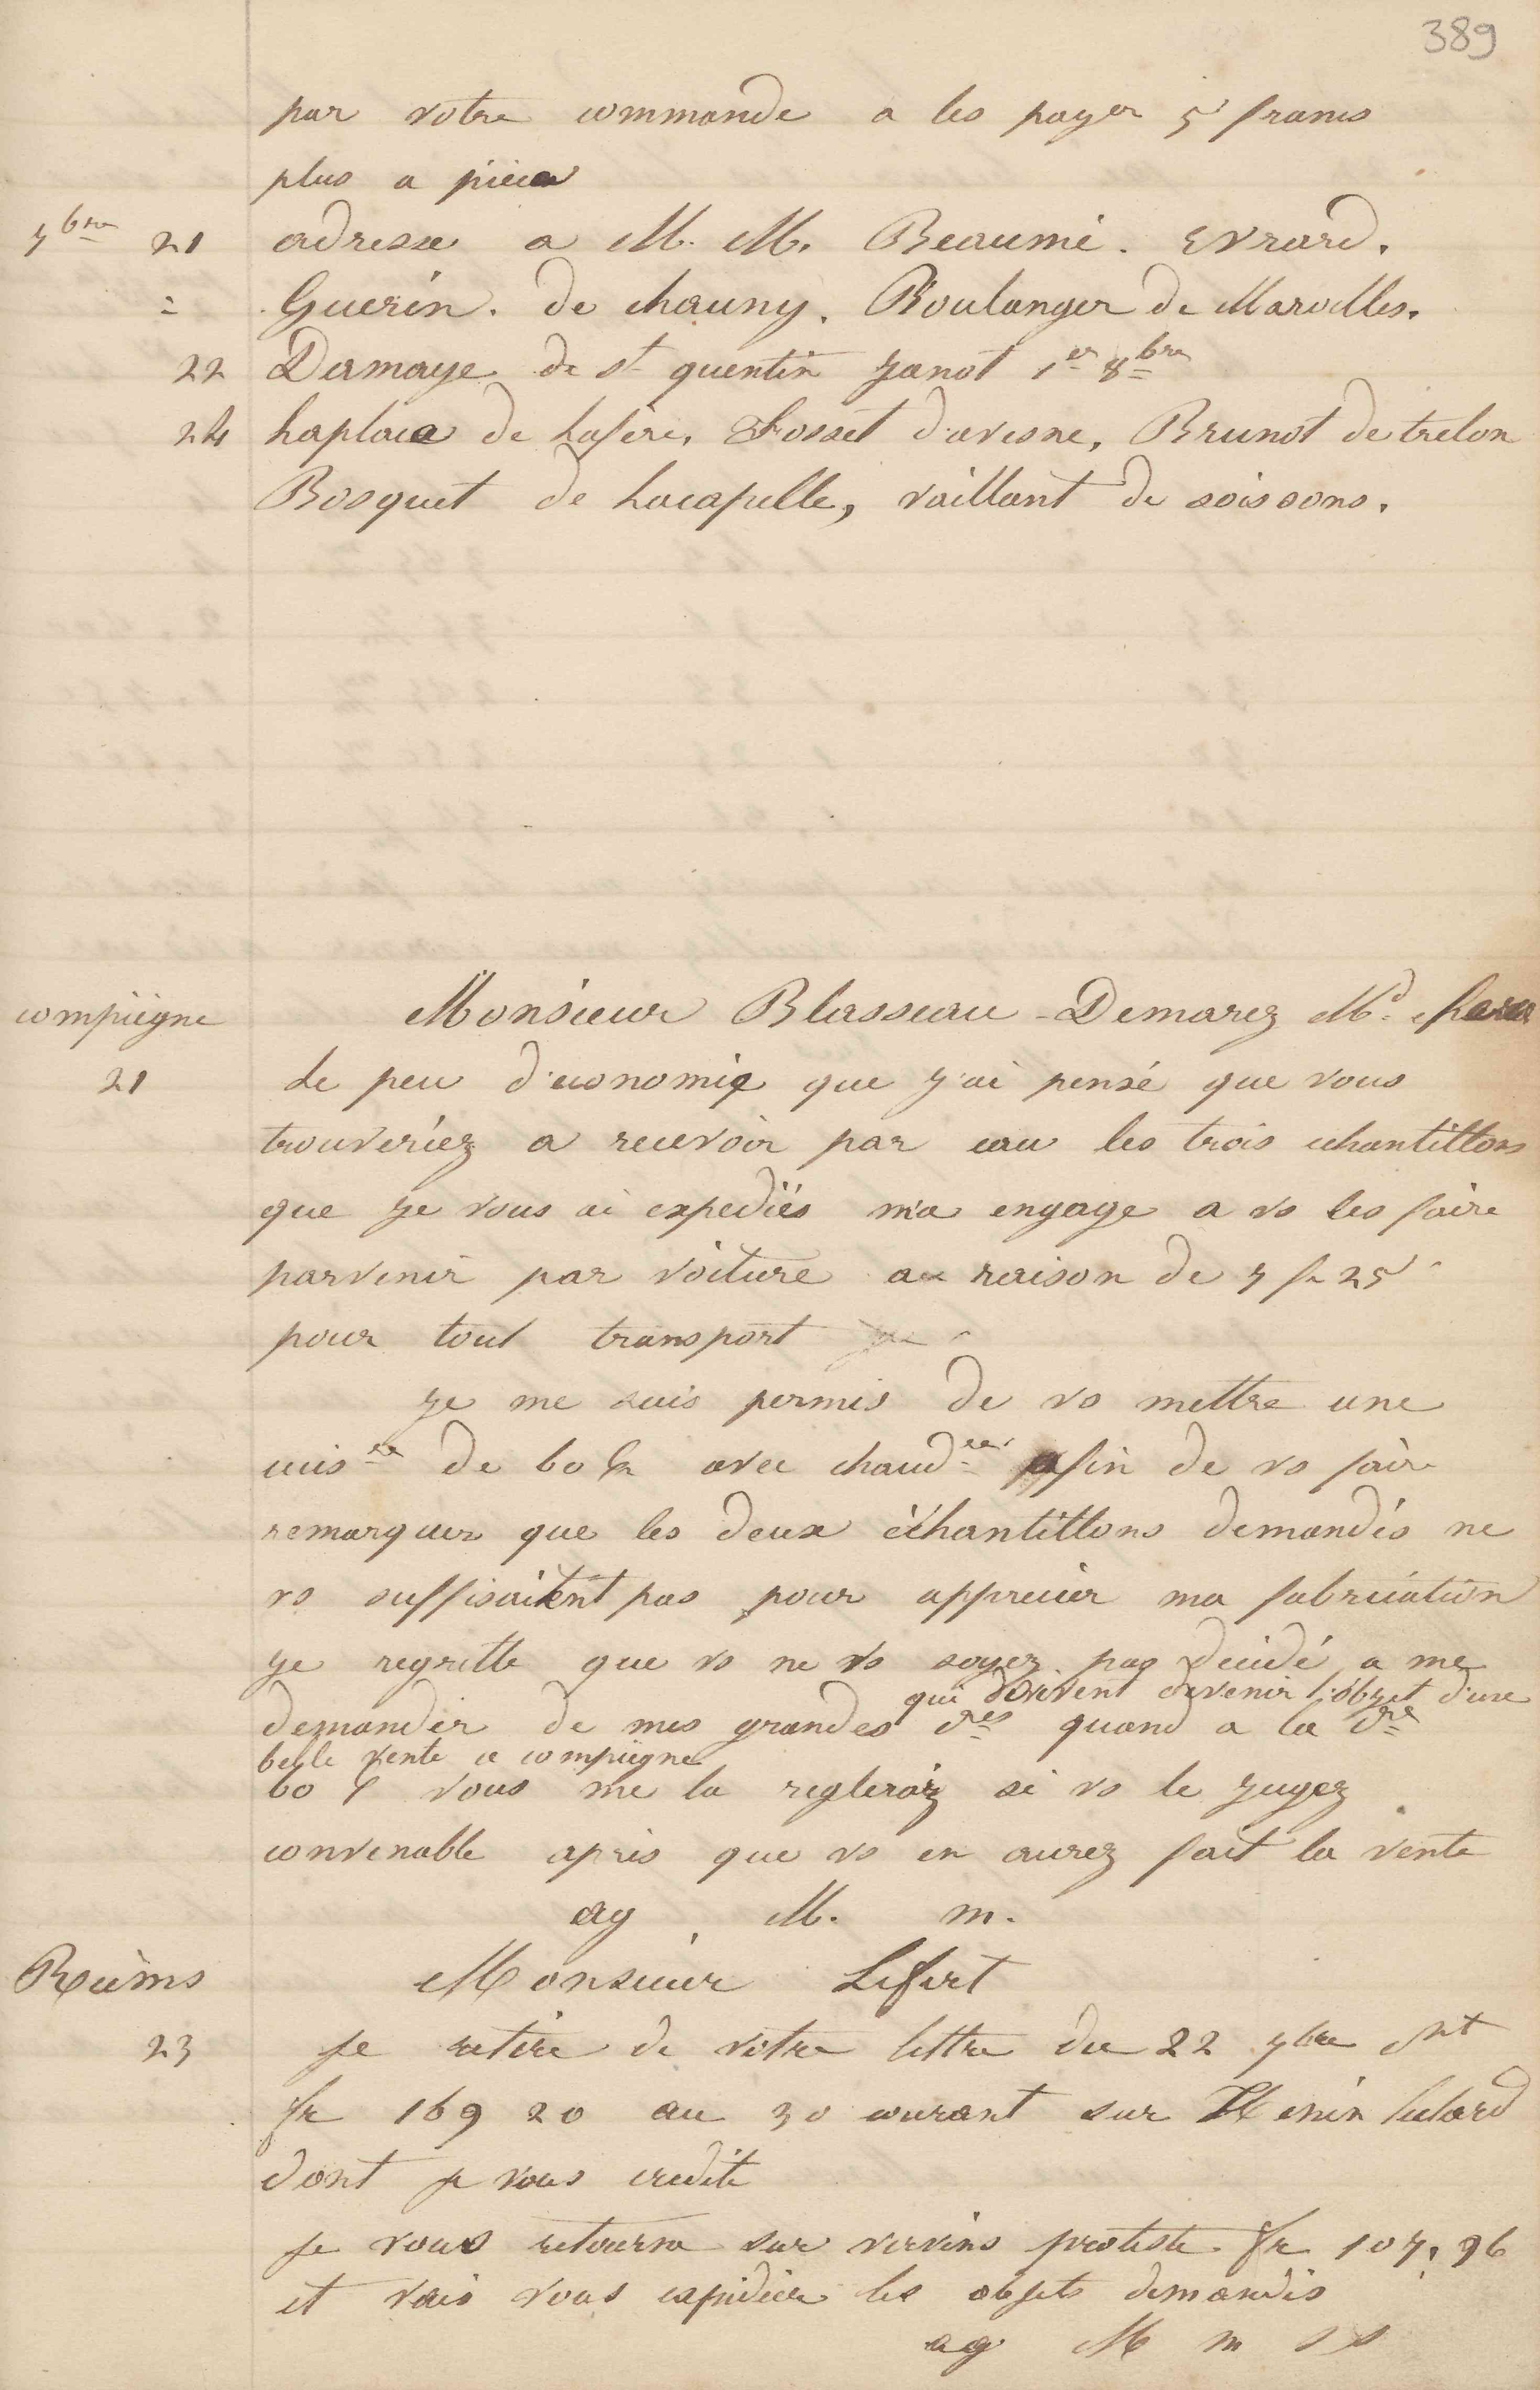 389
par votre commande a les payer 5 francs
plus a pièce
7bre 21 adresse a M. M. Beaumé. Evrard.
= Guerin. de chauny. Boulanger de Marolles.
22 Demaye de st quentin Janot 1er 8bre
24 Laplace de Lafère, Fosset d'avesne, Brunot de trelon
Bosquet de Lacapelle, vaillant de soissons.
compiègne Monsieur Blasseau-Demarez Md
21 Le peu d'economie que j'ai pensé que vous
trouveriez a recevoir par eau les trois echantillons
que je vous ai expediés m'a engage a vs les faire
parvenir par voiture a raison de 7 fr 25
pour tout transport
je me suis permis de vs mettre une
cuisre de 60 avec chaudre afin de vs faire
remarquer que les deux échantillons demandés ne
vs suffisaient pas pour apprecier ma fabrication
je regrette que vs ne vs soyez pas decidé a me
qui doivent devenir l'objet d'une
demander de mes grandes dres quand a la dre
belle vente a compiègne
60 vous me la reglerez si vs le jugez
convenable après que vs en aurez fait la vente
ag M. m.
Reims Monsieur Lefert
23 je retire de votre lettre du 22 7bre
fr 169 20 au 30 courant sur Henin lietard
dont je vous credite
je vous retourne sur vervins protesté fr 107,96
et vais vous expedier les objets demandés
ag M m s s